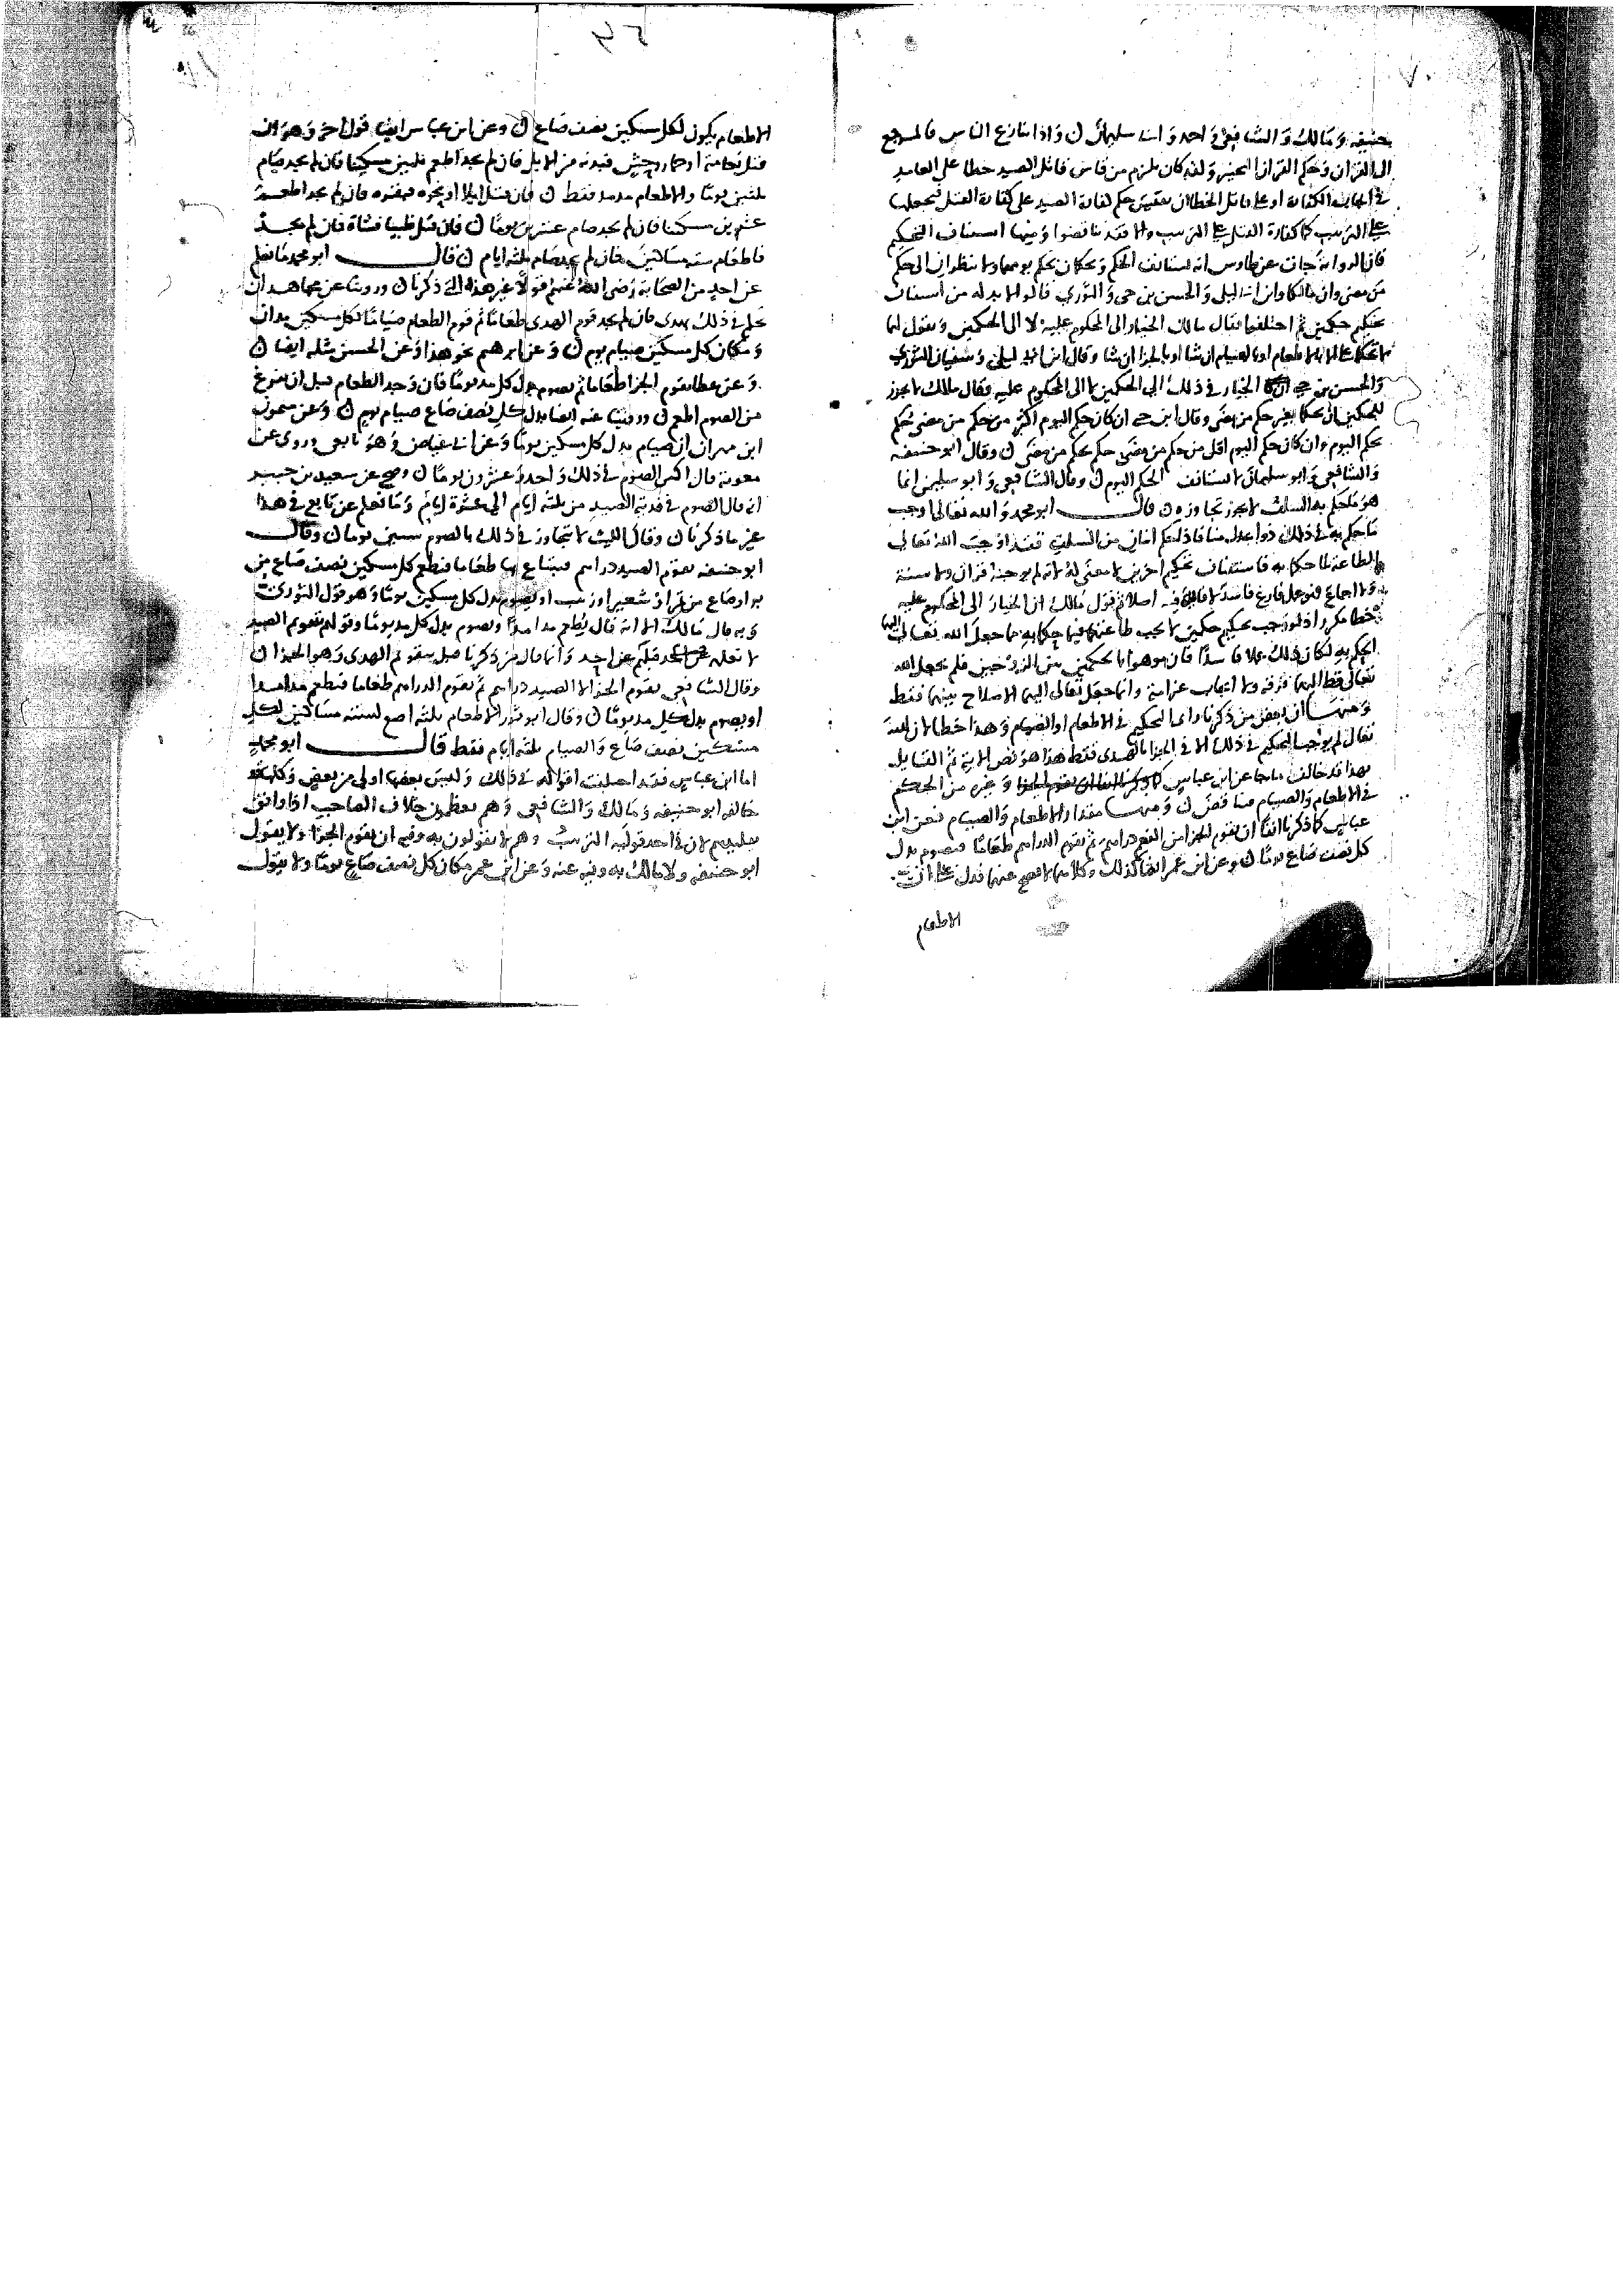 حنيفه وَمَالك وَالشافعي وَاحمد وَابا سليمان ن وَاذا تنازع الناس فالمرجع
الى القرآن وَحكم القرآن التخيير وَلقد كان يلزم من قاس قاتل الصيد خطا على العامد
في ايجابه الكفارة او على قاتل الخطا ان يقيس حكم كفارة الصيد على كفارة القتل فيجعلها
على الترتيب كما كفارة القتل على الترتيب والا فقد تناقضوا وَمنها استيناف التحكيم
فان الرواية جات عن طاوس انه يستانف الحكم وَيحكمان بحكم يومهما ولا ينظران الى حكم
من مضى وان مالكا وابن ابي ليلى وَالحسن بن حي وَالثوري قالوا لا بد له من استيناف
تحكيم حكمين ثم اختلفوا فقال مالك الخيار الى المحكوم عليه لا الى الحكمين وَيقول لهما
لا تحكما علي الا بالاطعام او بالصيام ان شا او بالجزا ان شا وقال ابن ابي ليلى وَسفيان الثوري
وَالحسن بن حي الخيار في ذلك الى الحكمين لا الى المحكوم عليه وقال مالك لا يجوز
للحكمين ان يحكما بغير حكم من مضى وقال ابن حي ان كان حكم اليوم اكثر من حكم من مضى حكم
بحكم اليوم وان كان حكم اليوم اقل من حكم من مضى حكم بحكم من مضى ن وقال ابو حنيفه
وَالشافعي وَابو سليمان لا يستانف الحكم اليوم ن وقال الشافعي وَابو سليمن انما
هو مَا حكم به السلف لا يجوز تجاوزه ن قال ابو محمد وَالله تعالى اوجب
مَا حكم به في ذلك ذوا عدل منا فاذا حكم اثنان من السلف فقد اوجب الله تعالى
الطاعة لما حكما به فاستئناف تحكيم اخرين لا معنى له لانه لم يوجبه قرآن ولا سنة
وَلا اجماع فهو عمل فارغ فاسد لا فائدة فيه اصلا ثم قول مالك ان الخيار الى المحكوم عليه
خطا مكرر اذ لو وجب تحكيم حكمين لا يجب طاعتهما فيما حكما به مما جعل الله تعالى اليهما
الحكم به لكان ذلك عملا فاسدا فان موهوا بالحكمين بين الزوجين فلم يجعل الله
تعالى قط اليهما فرقة ولا ايجاب غرامة وانما جعل تعالى اليهما الاصلاح بينهما فقط
وَمنها ان بعض من ذكرنا راى التحكيم في الاطعام او الصيام وَهذا خطا لان الله
تعالى لم يوجب التحكيم في ذلك الا في الجزا بالهدى فقط هذا هو نص الاية ثم القائل
بهذا قد خالف ما جا عن ابن عباس وَغيره من الحكم
في الاطعام وَالصيام فتناقض ن وَمنها مقدار الاطعام وَالصيام فعن ابن
عباس كما ذكرنا انفا ان يقوم الجزا من النعم دراهم ثم يقوم الدراهم طعامًا فيصوم بدل
كل نصف صاع يومًا ن وعن ابن عمر ايضا كذلك وكلاهما لا يصح عنهما فدل على ان
الاطعام
الاطعام يكون لكل مسكين نصف صَاع ن وعن ابن عباس ايضا قول اخر وَهوَ ان
قتل نعامة او حمار وحش فبدنة من الابل فان لم يجد اطعم ثلثين مسكينا فان لم يجد صَام
ثلثين يومًا والاطعام مد مد فقط ن فان قتل ايلا او نحوه فبقره فان لم يجد اطعم
عشرين مسكينا فان لم يجد صام عشرين يومًا ن فان قتل ظبيا فشاة فان لم يجد
فاطعام سته مَسَاكين فان لم يجد صَام ثلثه ايام ن قال ابو محمد مَا نعلم
عن احد من الصحابة رَضي الله عنهم قولا غير هذه التي ذكرنا ن وروينا عن مجاهد ان
يحكم في ذلك بهدى فان لم يجد قوم الهدى طعامًا ثم قوم الطعام صيامًا لكل مسكين مدان
وَمكان كل مسكين صيام يوم ن وَعن ابرهيم نحو هذا وَعن الحسن مثله ايضا ن
وَعن عطا يقوم الجزا طعَاما ثم يصوم بدل كل مد يومًا فان وَجد الطعام قبل ان يفرغ
من الصوم اطعم ن وروينا عنه ايضا بدل كل نصف صَاع صيام يوم ن وَعن ميمون
ابن مهران ان صيام بدل كل مسكين يومًا وَعن ابي عياض وَهو تابعي روى عن
معوية قال اكثر الصوم في ذلك وَاحد وَعشرون يومًا ن وصح عن سعيد بن جبير
انه قال الصوم في فدية الصيد من ثلثه ايام الى عشرة ايام وَمَا نعلم عن تابع في هذا
غير ما ذكرنا ن وقال الليث لا يتجاوز في ذلك بالصوم ستين يوما ن وقال
ابو حنيفه يقوم الصيد دراهم فيبتاع بها طعاما فيطعم كل مسكين نصف صَاع من
بر او صَاع من تمر او شعير او زبيب او يصوم بدل كل مسكين يومًا وَهو قول الثوري
وَبه قال مَالك الا انه قال يُطعم مدا مدا ويصوم بدل كل مد يومًا وقولهم بتقويم الصيد
لا نعلمه قبلهم عن احد وَانما قال من ذكرنا قبل بتقويم الهدى وَهو الجزا ن
وقال الشافعي يقوم الجزا لا الصيد دراهم ثم يقوم الدراهم طعاما فيطعم مدا مدا
او يصوم بدل كل مد يومًا ن وقال ابو ثور الاطعام ثلثه اصع لستة مسَاكين لكل
مسكين نصف صَاع وَالصيام ثلثه ايام فقط قال ابو محمد
اما ابن عباس فقد اختلفت اقواله في ذلك وَليسَ بعضها اولى من بعض وَكلها قد
خالفه ابو حنيفه وَمَالك وَالشافعي وَهم يعظمون خلاف الصاحب اذا وافق
تقليدهم لان في احد قوليه الترتيب وهم لا يقولون به وفيه ان يقوم الجزا ولا يقول
ابو حنيفه ولا مالك به وفيه عنه وَعن ابن عمر مكان كل نصف صَاع يومًا ولا يقول